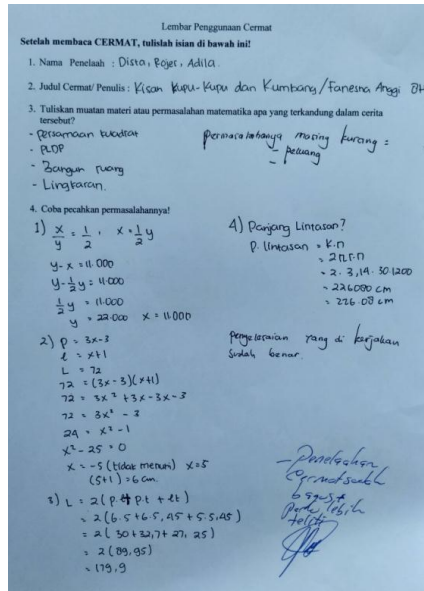 Lembar Penggunaan Cermat
Setelah membaca CERMAT, tulislah isian di bawah ini!
1. Nama Penelaah : Dista, Rojer, Adila.
2. Judul Cermat/ Penulis : Kisah Kupu-Kupu dan Kumbang / Fanesha Anggi
3. Tuliskan muatan materi atau permasalahan matematika apa yang terkandung dalam cerita
tersebut?
- Persamaan kuadrat
- PLDP
- Bangun ruang
- Lingkaran.
Permasalahanya masing kurang =
- peluang
-
4. Coba pecahkan permasalahannya!
1) x/y = 1/2 , x = 1/2 y
y - x = 11.000
y - 1/2 y = 11.000
1/2 y = 11.000
y = 22.000 x = 11.000
2) P = 3x-3
l = x+1
L = 72
72 = (3x-3)(x+1)
72 = 3x² + 3x - 3x - 3
72 = 3x² - 3
24 = x² - 1
x² - 25 = 0
x = -5 (tidak memuhi) x = 5
(5+1) = 6 cm.
3) L = 2(p.l + p.t + lt)
= 2(6.5 + 6.5,45 + 5.5,45)
= 2( 30 + 32,7 + 27,25)
= 2 (89,95)
= 179,9
4) Panjang Lintasan?
P. lintasan = K.n
= 2πr.n
= 2. 3,14. 30.1200
= 226080 cm
= 226.08 cm
penyelesaian yang di kerjakan
sudah benar.
- Penelaahan
Cermat sudah
bagus &
Perlu lebih
teliti